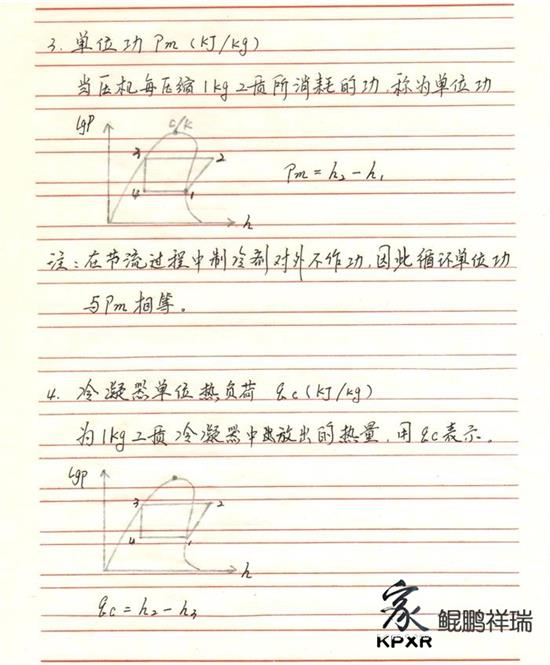 3. 单位功 Pm (KJ/kg)
当压机每压缩1kg工质所消耗的功,称为单位功
lgP
c/K
3
2
4
1
h
Pm = h₂ - h₁
注:在节流过程中制冷剂对外不作功,因此循环单位功
与Pm相等。
4. 冷凝器单位热负荷 qc (KJ/kg)
为1kg工质冷凝器中放出的热量,用qc表示。
lgP
3
2
4
1
h
qc = h₂ - h₃
家
KPXR
鲲鹏祥瑞